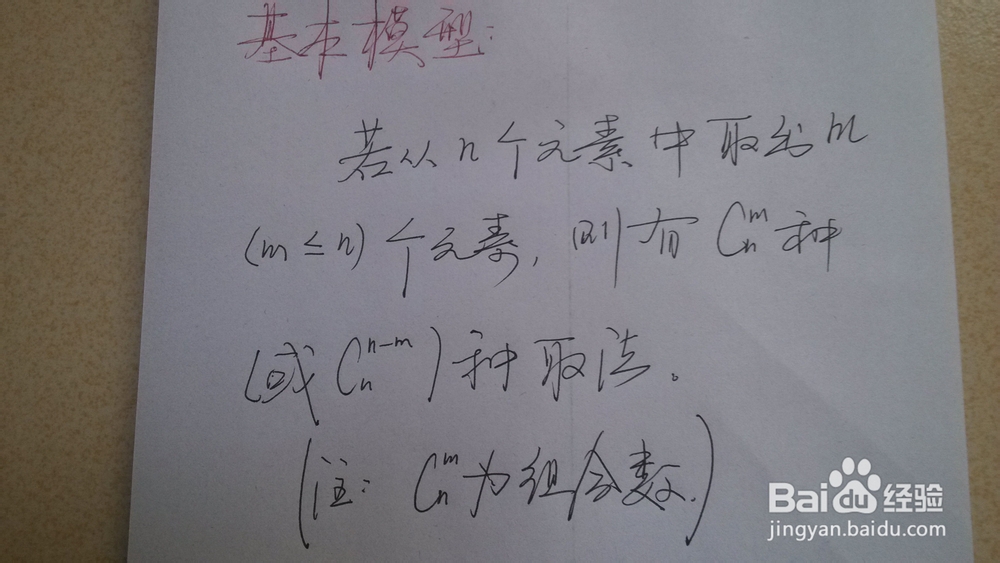 基本模型:
若从n个元素中取出m
(m≤n)个元素,则有Cₙᵐ种
(或Cₙⁿ⁻ᵐ)种取法。
(注: Cₙᵐ为组合数.)
Baidu经验
jingyan.baidu.com